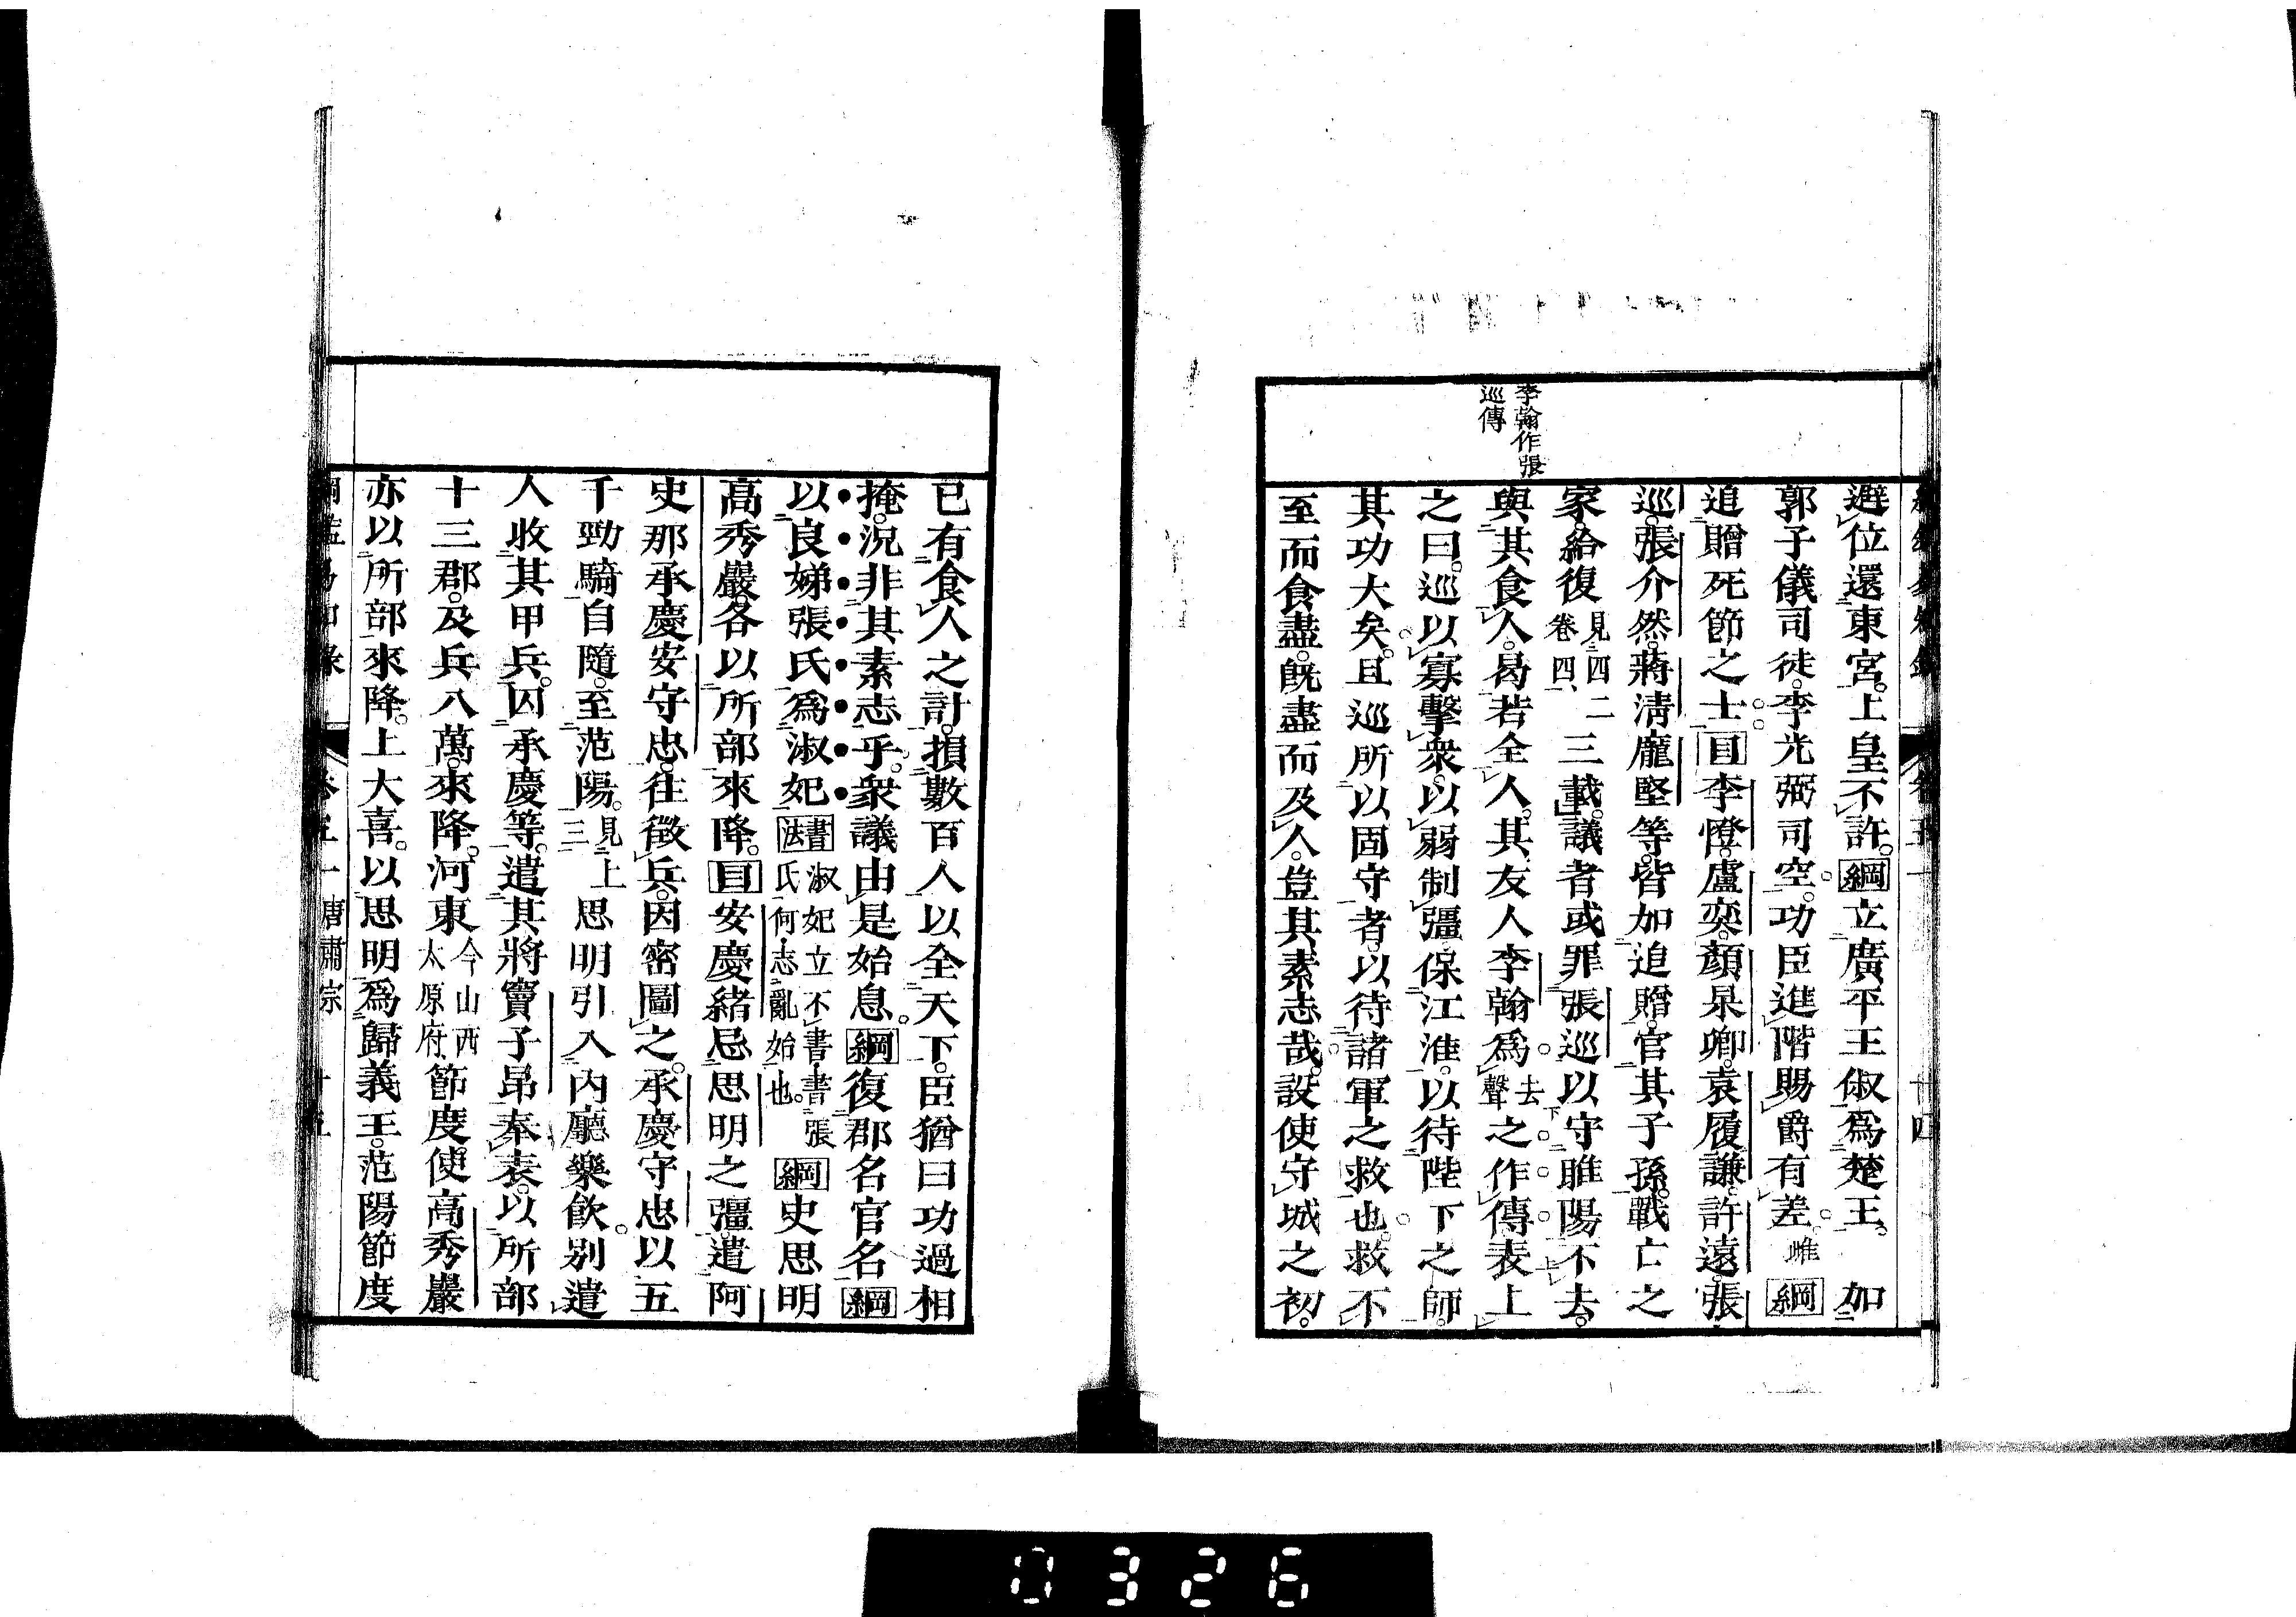 李翰作張
巡傳
避位還東宮。上皇不許。綱立廣平王俶爲楚王。加
郭子儀司徒。李光弼司空。功臣進階賜爵有差。雎綱
追贈死節之士。目李憕。盧奕。顏杲卿。袁履謙。許遠。張
巡。張介然。蔣淸。龐堅等。皆加追贈。官其子孫。戰亡之
家。給復見四二卷四三載。議者或罪張巡以守睢陽不去。
與其食人。曷若全人。其友人李翰爲去聲之作傳表上
之曰。巡以寡擊衆。以弱制彊。保江淮。以待陛下之師。
其功大矣。且巡所以固守者。以待諸軍之救也。救不
至而食盡。旣盡而及人。豈其素志哉。設使守城之初。
已有食人之計。損數百人以全天下。臣猶曰功過相
掩。況非其素志乎。衆議由是始息。綱復郡名官名綱
以良娣張氏爲淑妃書法淑妃立不書書張氏何志亂始也。綱史思明
高秀巖。各以所部來降。目安慶緒忌思明之彊。遣阿
史那承慶安守忠。往徵兵。因密圖之。承慶守忠以五
千勁騎自隨。至范陽。見上三思明引入內廳樂飮。別遣
人收其甲兵。囚承慶等。遣其將竇子昂奉表。以所部
十三郡。及兵八萬。來降。河東今山西太原府。節度使高秀巖
亦以所部來降。上大喜。以思明爲歸義王。范陽節度
唐肅宗
0326